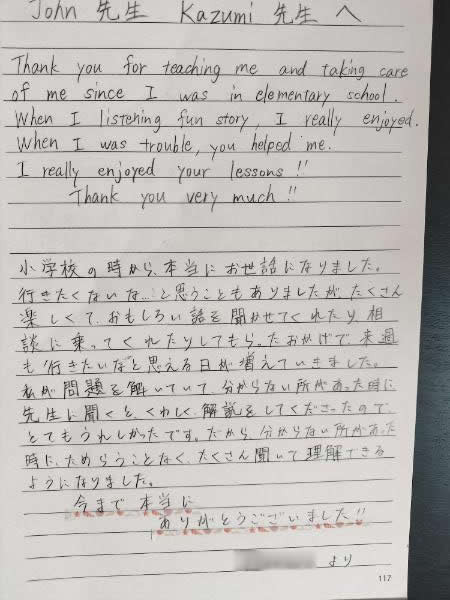 John 先生 Kazumi 先生 へ
Thank you for teaching me and taking care
of me since I was in elementary school.
When I listening fun story, I really enjoyed.
When I was trouble, you helped me.
I really enjoyed your lessons!!
Thank you very much!!
小学校の時から、本当にお世話になりました。
行きたくないな…と思うこともありましたが、たくさん
楽しくて、おもしろい話を聞かせてくれたり、相
談に乗ってくれたりしてもらったおかげで、来週
も行きたいなと思える日が増えていきました。
私が問題を解いていて、分からない所があった時に
先生に聞くと、くわしく解説をしてくださったので、
とてもうれしかったです。だから、分からない所があった
時に、ためらうことなく、たくさん聞いて理解できる
ようになりました。
今まで本当に
ありがとうございました!!
より
117